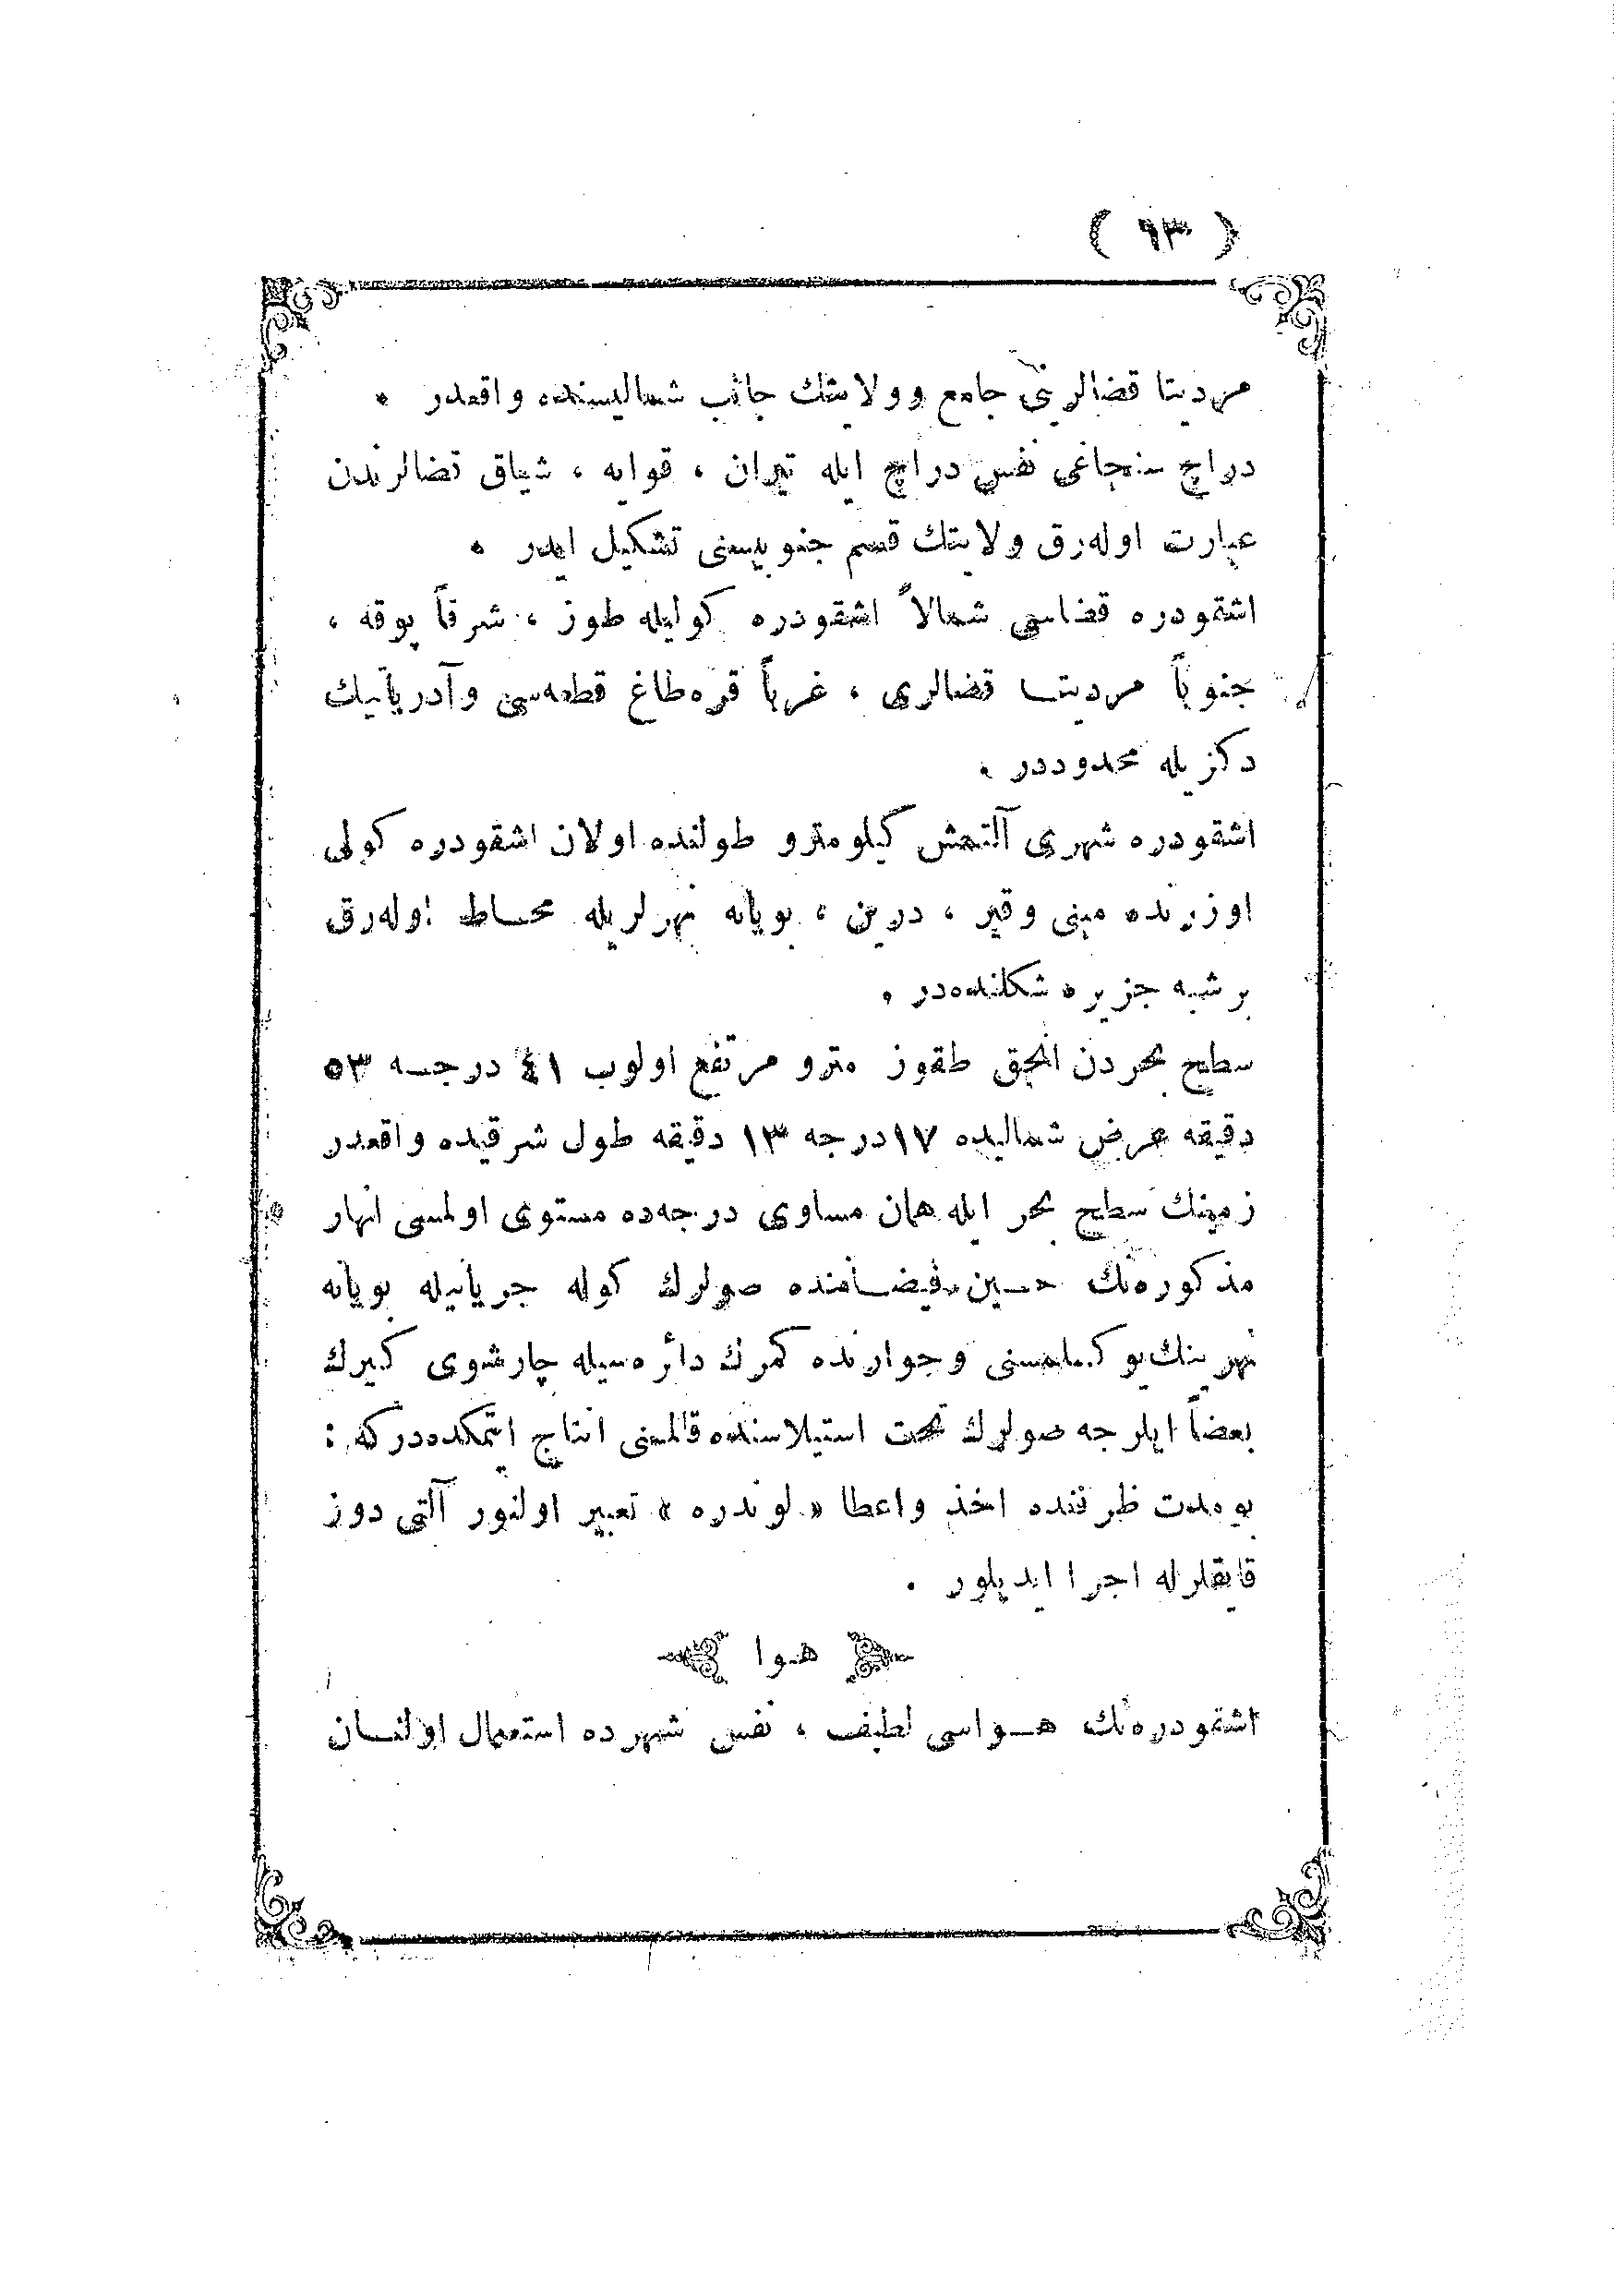 ( ٩٣ )
مرديتا قضالرينى جامع وولايتك جانب شماليسنده واقعدر .
دراچ سنجاغى نفس دراچ ايله تيران ، قوايه ، شياق قضالرندن
عبارت اوله‌رق ولايتك قسم جنوبيسنى تشكيل ايدر .
اشقودره قضاسى شمالاً اشقودره كوليله طوز ، شرقاً پوقه ،
جنوباً مرديتا قضالرى ، غرباً قره‌طاغ قطعه‌سى وآدرياتيك
دكزيله محدوددر .
اشقودره شهرى آلتمش كيلومترو طولنده اولان اشقودره كولى
اوزرنده مبنى وقير ، درين ، بويانه نهرلريله محاط اوله‌رق
بر شبه جزيره شكلنده‌در .
سطح بحردن انجق طقوز مترو مرتفع اولوب ٤١ درجه ٥٣
دقيقه عرض شماليده ١٧ درجه ١٣ دقيقه طول شرقيده واقعدر
زمينك سطح بحر ايله همان مساوى درجه‌ده مستوى اولمسى انهار
مذكوره‌نك حين فيضاننده صولرك كوله جريانيله بويانه
نهرينك يوكسلمسنى وجوارنده كمرك دائره‌سيله چارشوى كبيرك
بعضاً ايلرجه صولرك تحت استيلاسنده قالمسنى انتاج ايتمكده‌دركه :
بومدت ظرفنده اخذ واعطا « لوندره » تعبير اولنور آلتى دوز
قايقلرله اجرا ايديلور .
هوا
اشقودره‌نك هواسى لطيف ، نفس شهرده استعمال اولنان